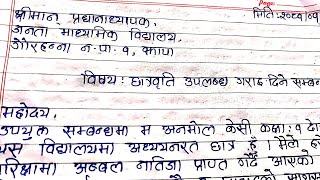 Page:
मिति: २०८१/०१
श्रीमान प्रधानाध्यापक,
जनता माध्यमिक विद्यालय,
गौरहन्ना न.पा. १, झापा
विषय: छात्रवृति उपलब्ध गराइ दिने सम्बन
महोदय,
उपर्युक्त सम्बन्धमा म अनमोल केसी कक्षा: १
यस विद्यालयमा अध्ययनरत छात्र हुँ । मैले
परिक्षामा अब्बल नतिजा प्राप्त गर्दै आएको